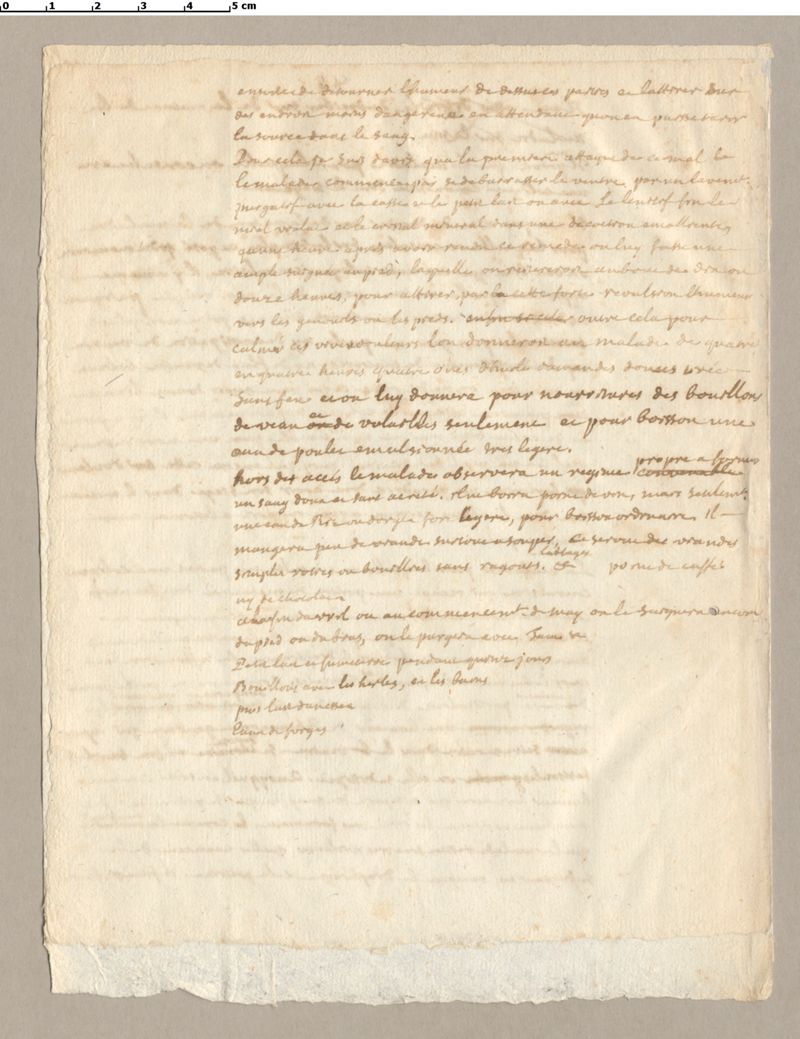 0 1 2 3 4 5 cm
ensuite de detourner l'humeur de dessus ces parties et l'attirer sur
des endrois moins dangereux en attendant qu'on en puisse tarir
la source dans le sang.
Pour cela je suis davis qu'a la premiere attaque de ce mal le
le malade commence par se debarrasser le ventre par un lavemt.
purgatif avec la casse et le petit lait ou avec le lenitif fin le
miel violat et le cristal mineral dans une decoction emolliente,
qu'une heure apres avoir rendu ce remede on luy fasse une
ample saignée du pied, laquelle on reiterera au bout de dix ou
douze heures, pour attirer par la cette forte revulsion l'humeur
vers les genouils ou les pieds. outre cela pour
calmer ces vives douleurs l'on donnera au malade de quatre
en quatre heures quatre onces d'huile damandes douces tirée
sans feu et on luy donnera pour nourritures des bouillons
de veau et de volailles seulement et pour boisson une
eau de poulet emulsionnée tres legere.
hors des accés le malade observera un regime convenable propre a former
un sang doux et sans acreté. Il ne boira point de vin, mais seulemt.
une eau de Ris ou d'orge fort legere, pour boisson ordinaire. Il
mangera peu de viande surtout a souper, et ce seront des viandes
simples roties ou bouillies sans ragouts. point de caffé
ny de chocolat
a la fin davril ou au commencemt. de may on le saignera encore
du pied ou du bras, on le purgera avec
Petit lait et fumeterre pendant quinze jours
Bouillons avec les herbes, et les bains
puis lait danesse
Eaux de forges